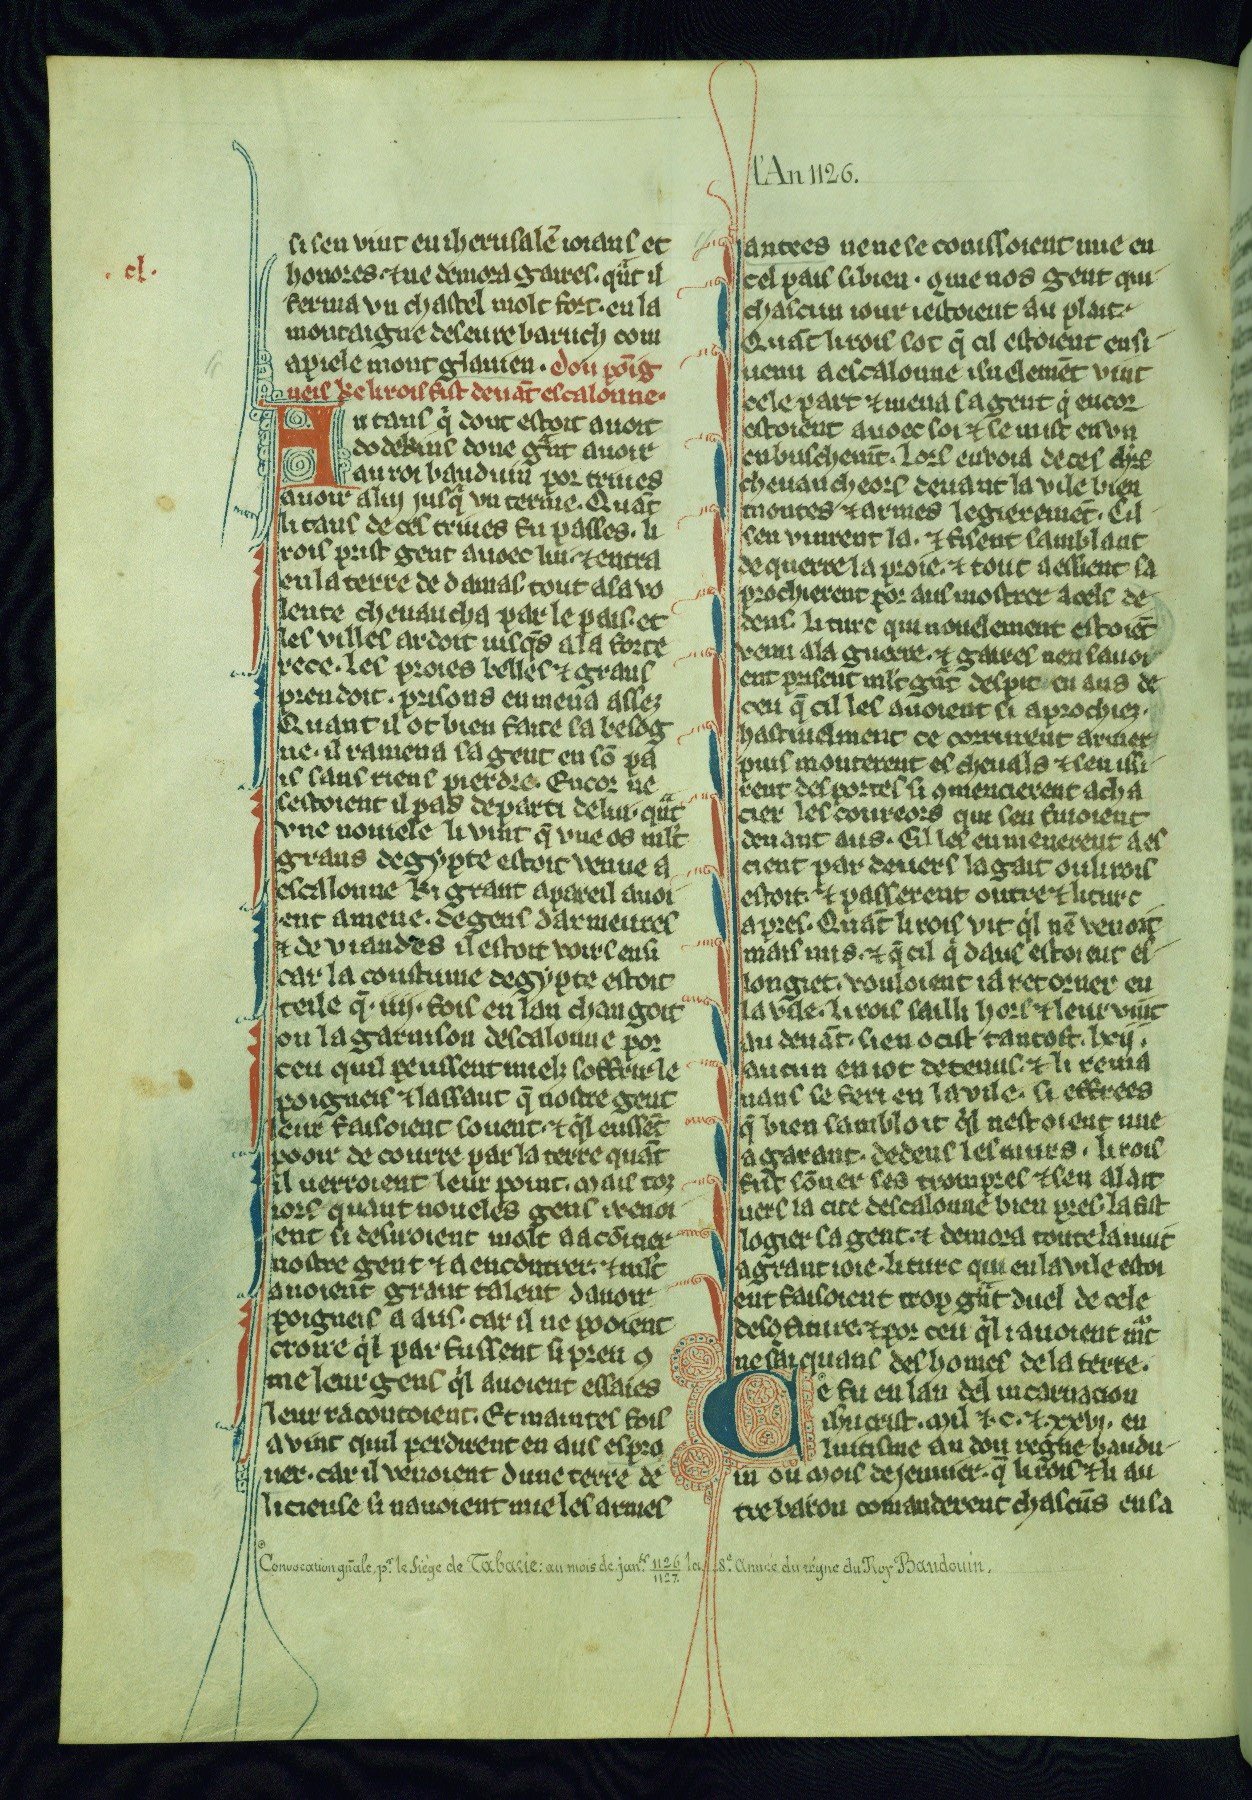 l'An 1126.
.cl.
si sen vint en iherusalē ioians et
honores. ⁊ ne demora gaires. q̄nt il
ferma vn chastel molt fort. en la
montaigne deseure baruch com
apiele mont glauien. Dou poīg
neis ke li rois fist deuāt escalonne.
En tans q̄ dont estoit auoit
dodekins done gͣnt auoir
au roi bauduin por triues
auoir a lui jusq̄ vn terme. Quāt
li tans de ces triues fu passes. li
rois prist gent auoec lui. ⁊ entra
en la terre de damas. tout a sa vo
lente cheuaucha par le pais. et
les villes ardoit iusq̄s a la forte
rece. Les proies belles ⁊ grans
prendoit. prisons enmena assez
Quant il ot bien faite sa besōg
ne. il ramena sa gent en sō pa
is sans riens pierdre. Encor ne
sestoient il pas departi de lui. qͣnt
vne nouiele li vint q̄ vne os ml̄t
grans degypte estoit venue a
escalonne ki grant apareil auoi
ent amene. de gens darmeures
⁊ de viandes il estoit voirs ensi
car la coustume degypte estoit
teile q̄. iiij. fois en lan changoit
on la garnison descalonne por
ceu quil peussent mielz soffrir le
poigneis ⁊ lassaut q̄ nostre gent
leur faisoient souent. ⁊ q̄l eussēt
pooir de courre par la terre quāt
il uerroient leur point. Mais toz
iors quant noueles gens i venoi
ent si desiroient molt a acōitier
nostre gent ⁊ a encontrer. ⁊ ml̄t
auoient grant talent dauoir
poigneis a aus. car il ne pooient
croire q̄l par fussent si preu 9
me leur gens q̄l auoient essaies
leur racontoient. Et maintes fois
avint quil perdirent en aus espro
uer. car il venoient dune terre de
licieuse si nauoient mie les armes
antees ne ne se conissoient mie en
cel pais si bien. que nos gent qui
chascun iour iestoient au plait.
Quāt li rois sot q̄ cil estoient ensi
uenu a escalonne isnelemēt vint
cele part ⁊ mena sa gent q̄ encor
estoient auoec soi ⁊ se mist en vn
enbuschemt. Lors enuoia de ces
cheuaucheors deuant la vile bien
montes ⁊ armes legieremēt. Cil
sen vinrent la. ⁊ fisent samblant
de querre la proie. ⁊ tout a essient sa
prochierent por aus mostrer a cels de
dens. li turc qui nouelement estoiēt
venu a la guerre. ⁊ gaires nen sauoi
ent prisent ml̄t gͣnt despit en aus de
ceu q̄ cil les auoient si aprochiez.
hastiuelment ce corrurent armer
puis monterent es cheuals ⁊ sen issi
rent des portes si 9mencierent a cha
cier les coureors qui sen fuioient
deuant aus. Cil les enmenerent a es
cient par deuers lagait ou li rois
estoit. ⁊ passerent outre ⁊ li turc
apres. Quāt li rois vit q̄l nē venoit
mais nus. ⁊ q̄ cil q̄ daus estoient es
longiet. vouloient ia retorner en
la vile. li rois sailli hors ⁊ leur vint
au deuāt. si en ocist tantost. lxij.
aucun en iot detenus. ⁊ li rema
nans se feri en la vile. si effrees
q̄ bien sambloit q̄l nestoient mie
a garant. dedens les murs. li rois
fist sōner ses trompes ⁊ sen alait
uers la cite descalonne bien pres. la fist
logier sa gent. ⁊ demora toute la nuit
a grant ioie. li turc qui en la vile estoi
ent faisoient trop gͣnt duel de cele
desc̄fiture. ⁊ por ceu q̄l i auoient mͣt
ne sai quans des homes de la terre.
Ce fu en lan del incarnacion
ihucrist. Mil ⁊. c. ⁊. xxvi. en
luitisme an dou regne baudu
in ou mois de jenuier. q̄ li rois ⁊ li au
tre baron comanderent chascūs en sa
Convocation gn̄ale, pr. le Siége de Tabarie: au mois de janer. 1126/1127. 8e. Année du régne du Roy Baudouin.